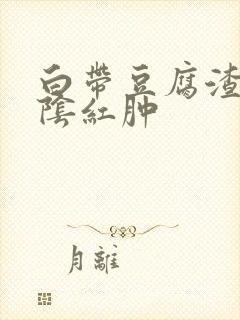 白帶豆腐渣
陰紅肿
月離